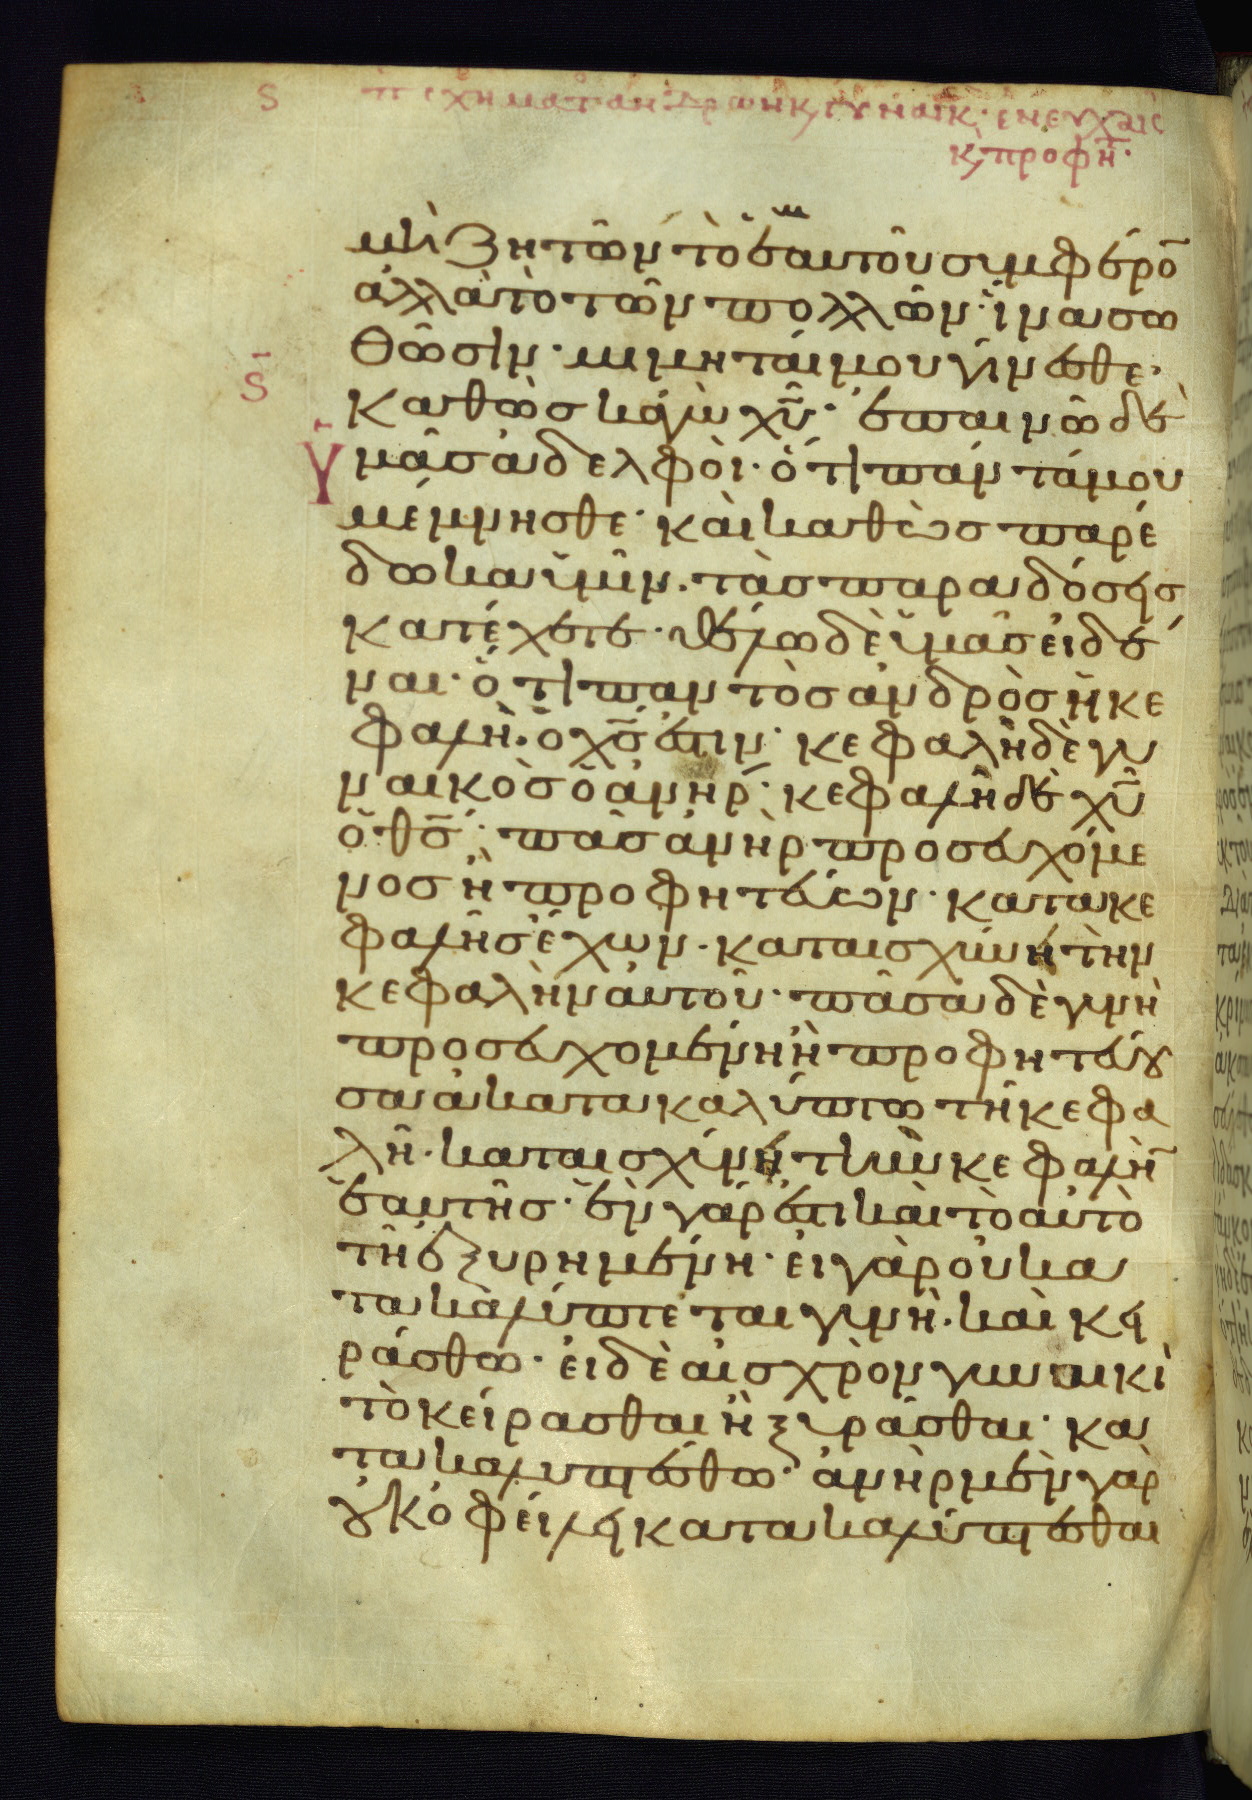 ϛ πε σχηματ ανδρων κ γυναικ· εν ευχαις
κ προφη·
μὴ ζητῶν τὸ ἐμαυτοῦ συμφέρο̄
ἀλλὰ τὸ τῶν πολλῶν· ἵνα σω
θῶσιν· μιμηταί μου γίνεσθε·
ϛ
καθὼς κἀγὼ χῡ· ἐπαινῶ δὲ
ὑμᾶς ἀδελφοί· ὅτι πάντα μου
μέμνησθε· καὶ καθὼς παρέ
δωκα ὑμῖν· τὰς παραδόσεις
κατέχετε· θέλω δὲ ὑμᾶς εἰδέ
ναι· ὅτι παντὸς ἀνδρὸς ἡ κε
φαλὴ· ὁ χ̄ς ἐστιν· κεφαλὴ δὲ γυ
ναικὸς ὁ ἀνήρ· κεφαλὴ δὲ χῡ
ὁ θ̄ς· πᾶς ἀνὴρ προσευχόμε
νος ἢ προφητεύων· κατα κε
φαλῆς ἔχων· καταισχύνει τὴν
κεφαλὴν αὐτοῦ· πᾶσα δὲ γυνὴ
προσευχομένη ἢ προφητεύου
σα ἀκατακαλύπτω τῆ κεφα
λῆ· καταισχύνει τὴν κεφαλὴ̄
ἑαυτῆς· ἓν γάρ ἐστι καὶ τὸ αὐτὸ
τῆ ἐξυρημένη· εἰ γὰρ οὐ κα
τακαλύπτεται γυνὴ· καὶ κει
ράσθω· εἰ δὲ αἰσχρὸν γυναικὶ
τὸ κείρασθαι ἢ ξυρᾶσθαι· κα
τακαλυπτέσθω· ἀνὴρ μὲν γὰρ
οὐκ ὀφείλει κατακαλύπτεσθαι